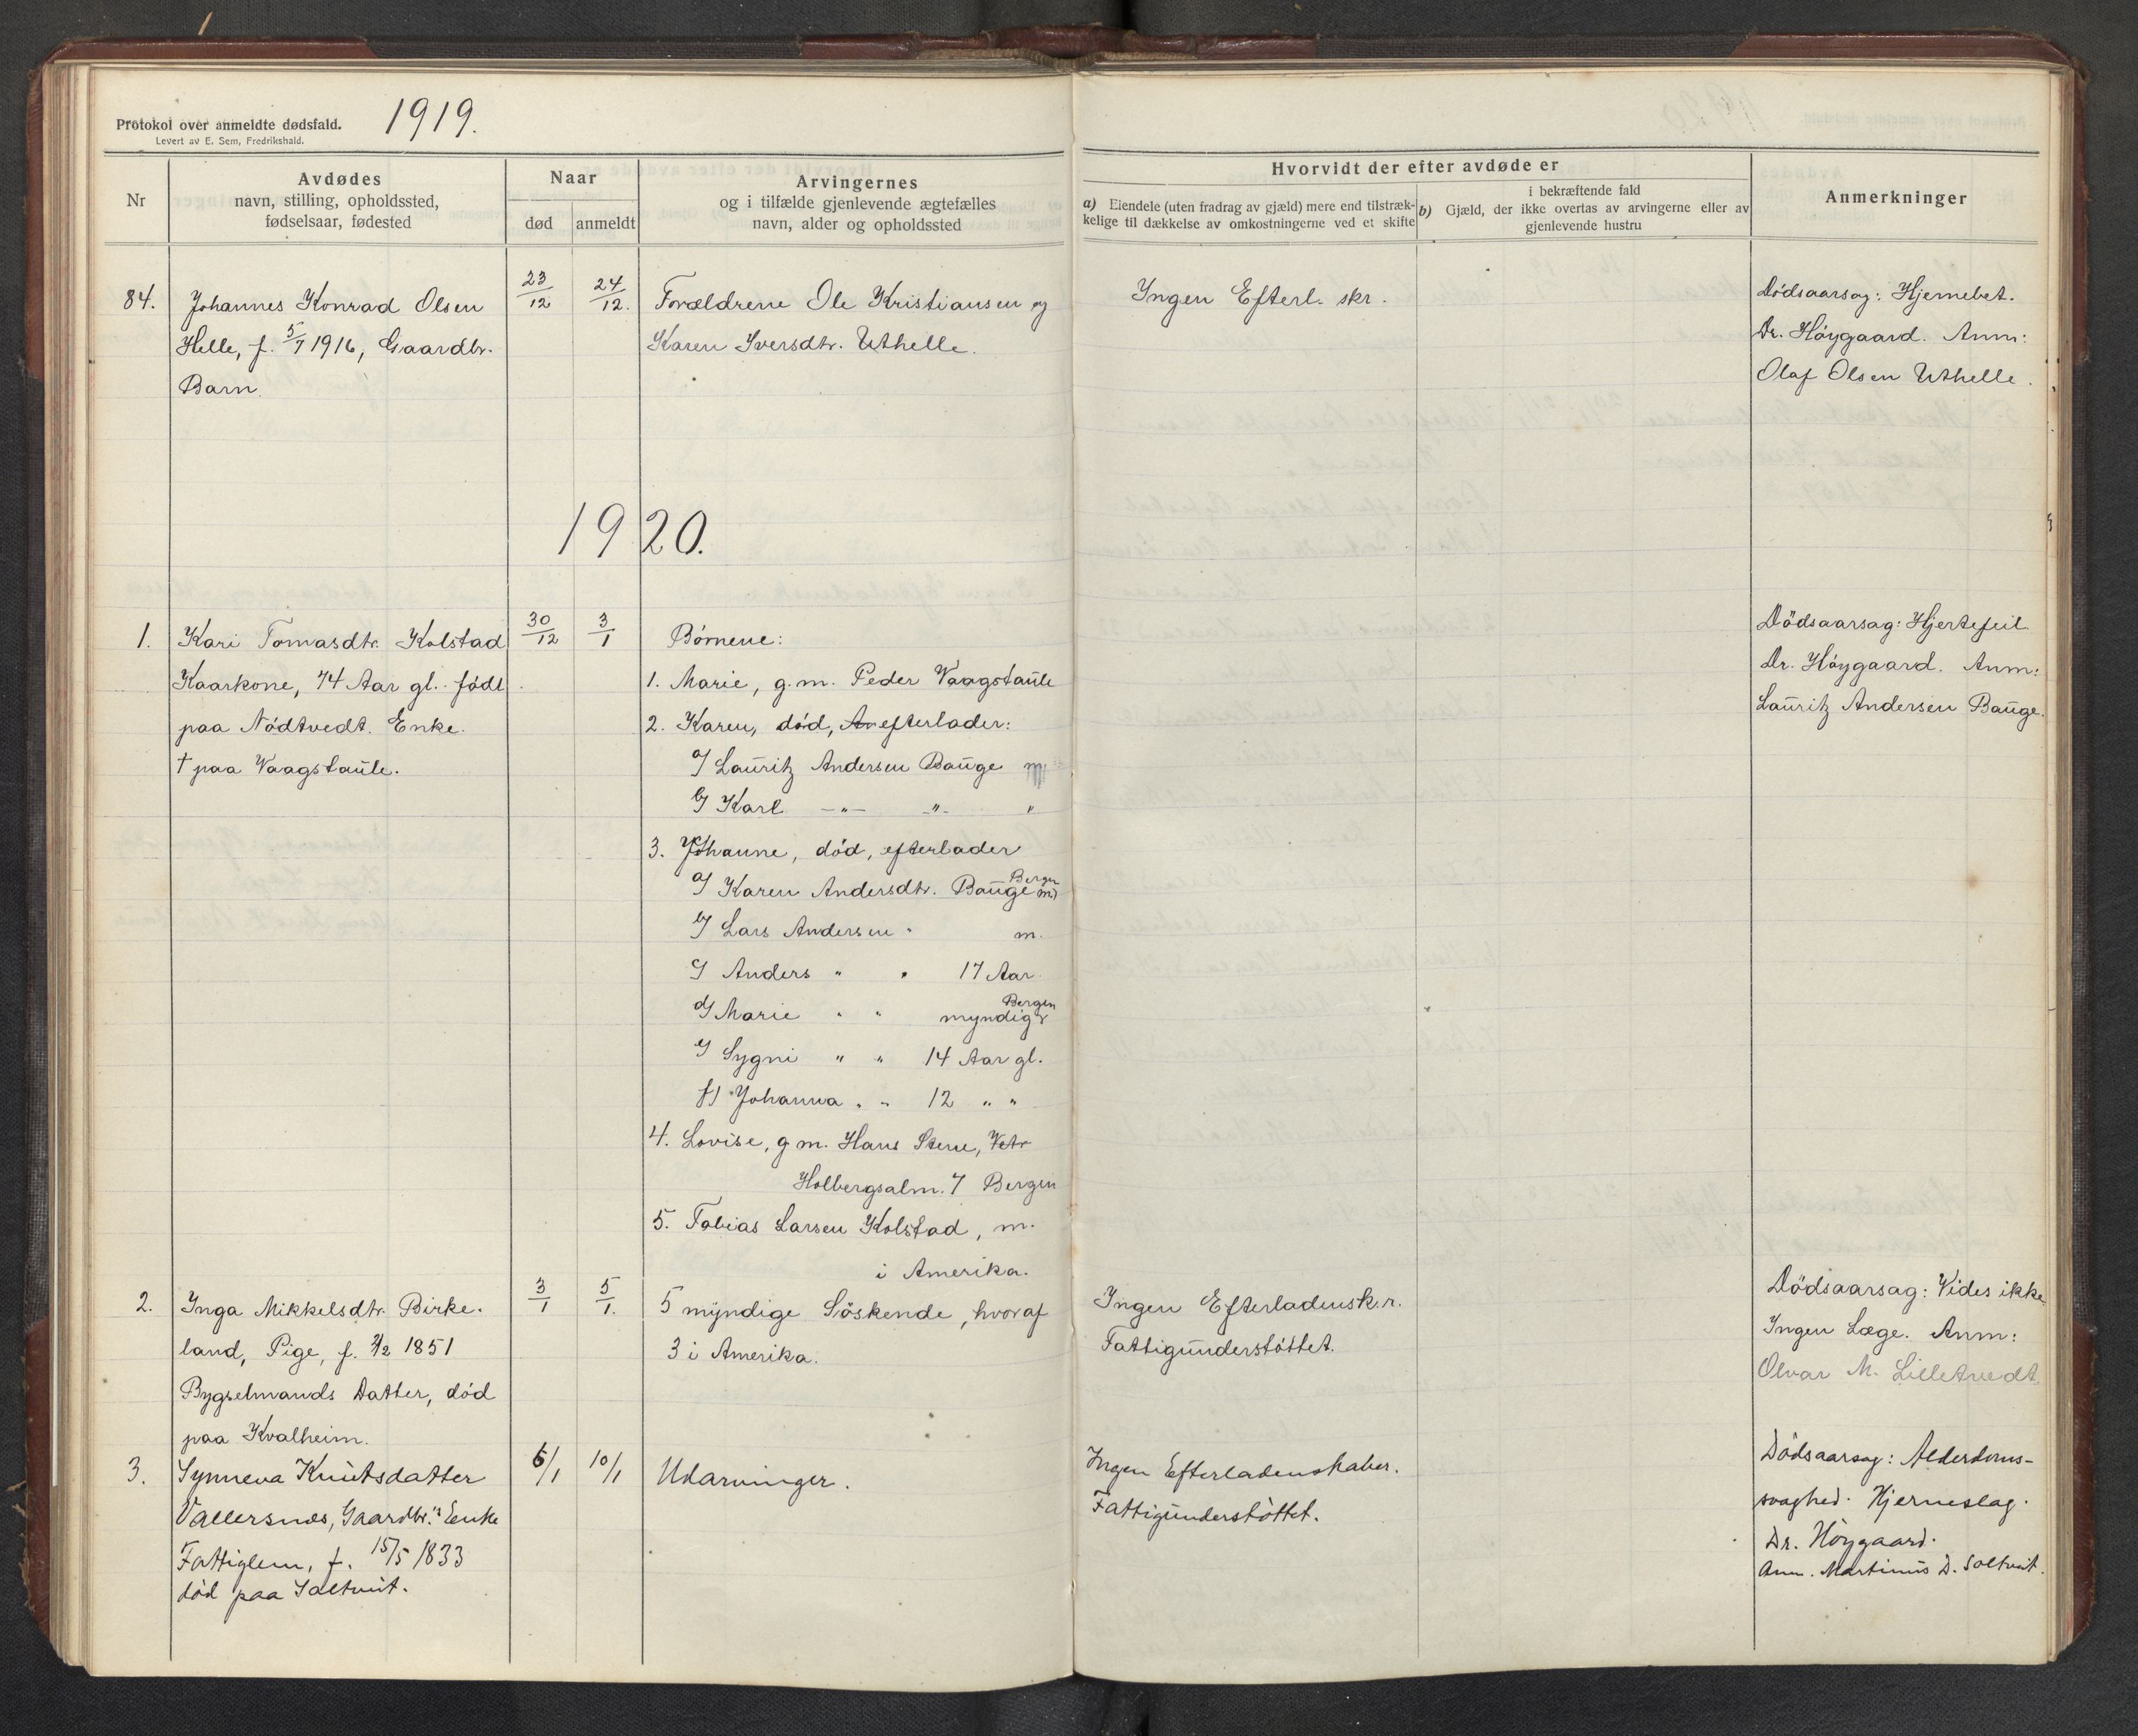 Protokol over anmeldte dødsfald.
1919.
Levert av E. Sem, Fredrikshald.
Nr
Avdødes
navn, stilling, opholdssted,
fødselsaar, fødested
Naar
død
anmeldt
Arvingernes
og i tilfælde gjenlevende ægtefælles
navn, alder og opholdssted
Hvorvidt der efter avdøde er
a) Eiendele (uten fradrag av gjæld) mere end tilstræk-
kelige til dækkelse av omkostningerne ved et skifte
i bekræftende fald
b) Gjæld, der ikke overtas av arvingerne eller av
gjenlevende hustru
Anmerkninger
84.
Johannes Konrad Olsen
Helle, f. 5/1 1916, Gaardbr.
Barn.
23/12
24/12.
Forældrene Ole Kristiansen og
Karen Iversdtr. Uthelle.
Ingen Efterl. skr.
Dödsaarsag: Hjernebet.
Dr. Höygaard. Anm:
Olaf Olsen Uthelle.
1920.
1.
Kari Tomasdtr. Kolstad
Kaarkone, 74 Aar gl. född
paa Nödtvedt. Enke.
† paa Vaagstaule.
30/12
3/1
Börnene:
1. Marie, g.m. Peder Vaagstaule
2. Karen, död, efterlader:
a) Lauritz Andersen Bauge m
b) Karl -"- -"- "
3. Johanne, död, efterlader
a) Karen Andersdtr. Bauge Bergen m
b) Lars Andersen " m.
c) Anders " " 17 Aar
d) Marie " " myndig Bergen
e) Sygni " " 14 Aar gl.
f) Johanna " " 12 " "
4. Lovise, g.m. Hans Stene,
Holbergsalm. 7 Bergen
5. Tobias Larsen Kolstad, m.
i Amerika.
Dödsaarsag: Hjertefeil
Dr. Höygaard. Anm:
Lauritz Andersen Bauge.
2.
Inga Mikkelsdtr. Birke-
land, Pige, f. 2/2 1851
Bygselmands Datter, död
paa Kvalheim.
3/1
5/1.
5 myndige Söskende, hvoraf
3 i Amerika.
Ingen Efterladensk.r.
Fattigunderstöttet.
Dödsaarsag: Vides ikke
Ingen Læge. Anm:
Olvar M. Lilletvedt
3.
Synneva Knutsdatter
Vallersnes, Gaardbr.s Enke
Fattiglem, f. 15/5 1833
död paa Saltveit.
6/1
10/1
Udarvinger.
Ingen Efterladenskaber.
Fattigunderstöttet.
Dödsaarsag: Alderdoms-
svaghed. Hjerneslag.
Dr. Höygaard.
Anm. Martinus D. Saltveit.